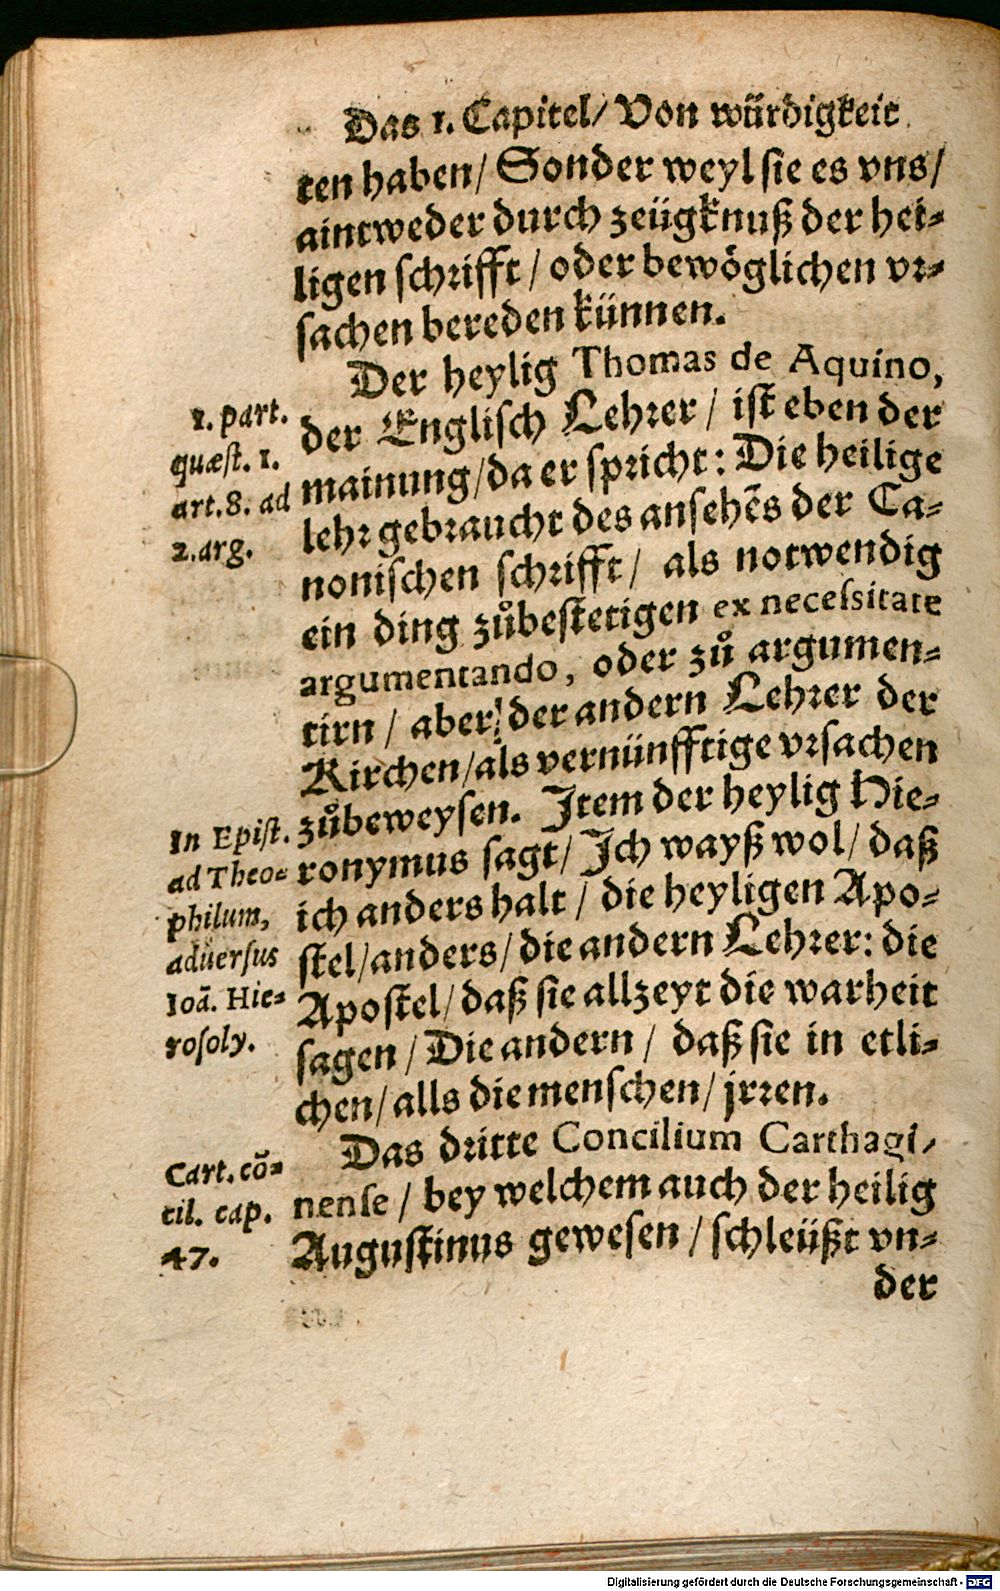 Das 1. Capitel/ Von würdigkeit
ten haben/ Sonder weyl sie es vns/
aintweder durch zeügknuß der hei-
ligen schrifft / oder bewöglichen vr-
sachen bereden künnen.
Der heylig Thomas de Aquino,
1. part.
quæst. 1.
art. 8. ad
2. arg.
der Englisch Lehrer / ist eben der
mainung/da er spricht: Die heilige
lehr gebraucht des ansehēs der Ca-
nonischen schrifft/ als notwendig
ein ding zůbestetigen ex necessitate
argumentando, oder zů argumen-
tirn / aber/ der andern Lehrer der
Kirchen/als vernünfftige vrsachen
zůbeweysen. Item der heylig Hie-
In Epist.
ad Theo-
philum,
aduersus
Ioā. Hie-
rosoly.
ronymus sagt/ Ich wayß wol/ daß
ich anders halt / die heyligen Apo-
stel/anders/die andern Lehrer: die
Apostel/daß sie allzeyt die warheit
sagen / Die andern / daß sie in etli-
chen/alls die menschen/ jrren.
Das dritte Concilium Carthagi-
Cart. cō-
cil. cap.
47.
nense / bey welchem auch der heilig
Augustinus gewesen / schleüßt vn-
der
Digitalisierung gefördert durch die Deutsche Forschungsgemeinschaft - DFG